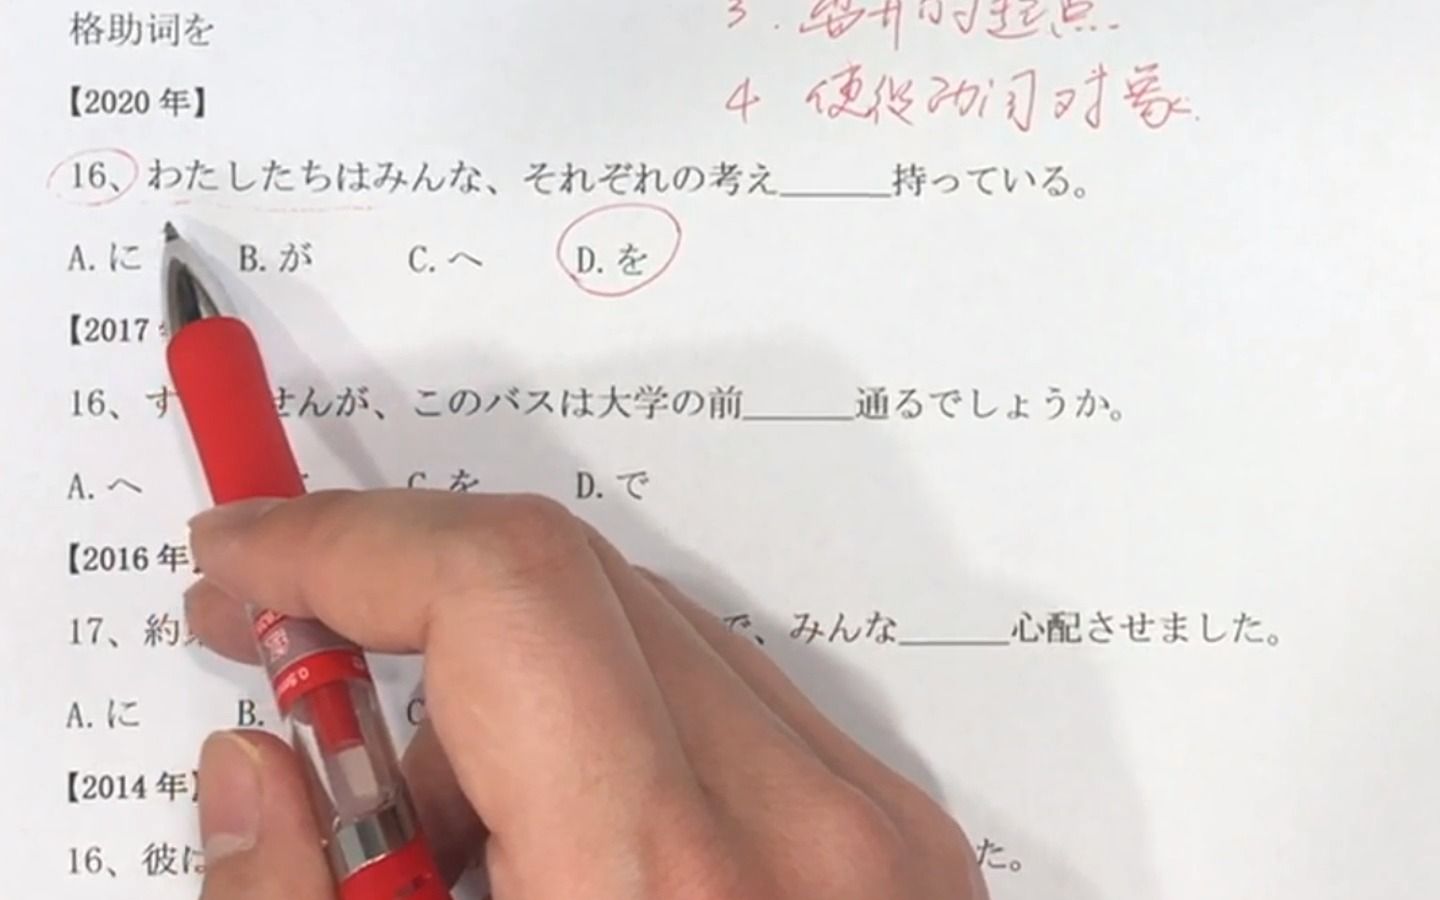 格助词を
3. 离开的起点.
【2020 年】
4 使役动词对象.
16、わたしたちはみんな、それぞれの考え______持っている。
A. に B. が C. へ D. を
【2017
16、す せんが、このバスは大学の前______通るでしょうか。
A. へ C. を D. で
【2016 年】
17、約 で、みんな______心配させました。
A. に B. C
【2014 年】
16、彼は た。
0.5mm